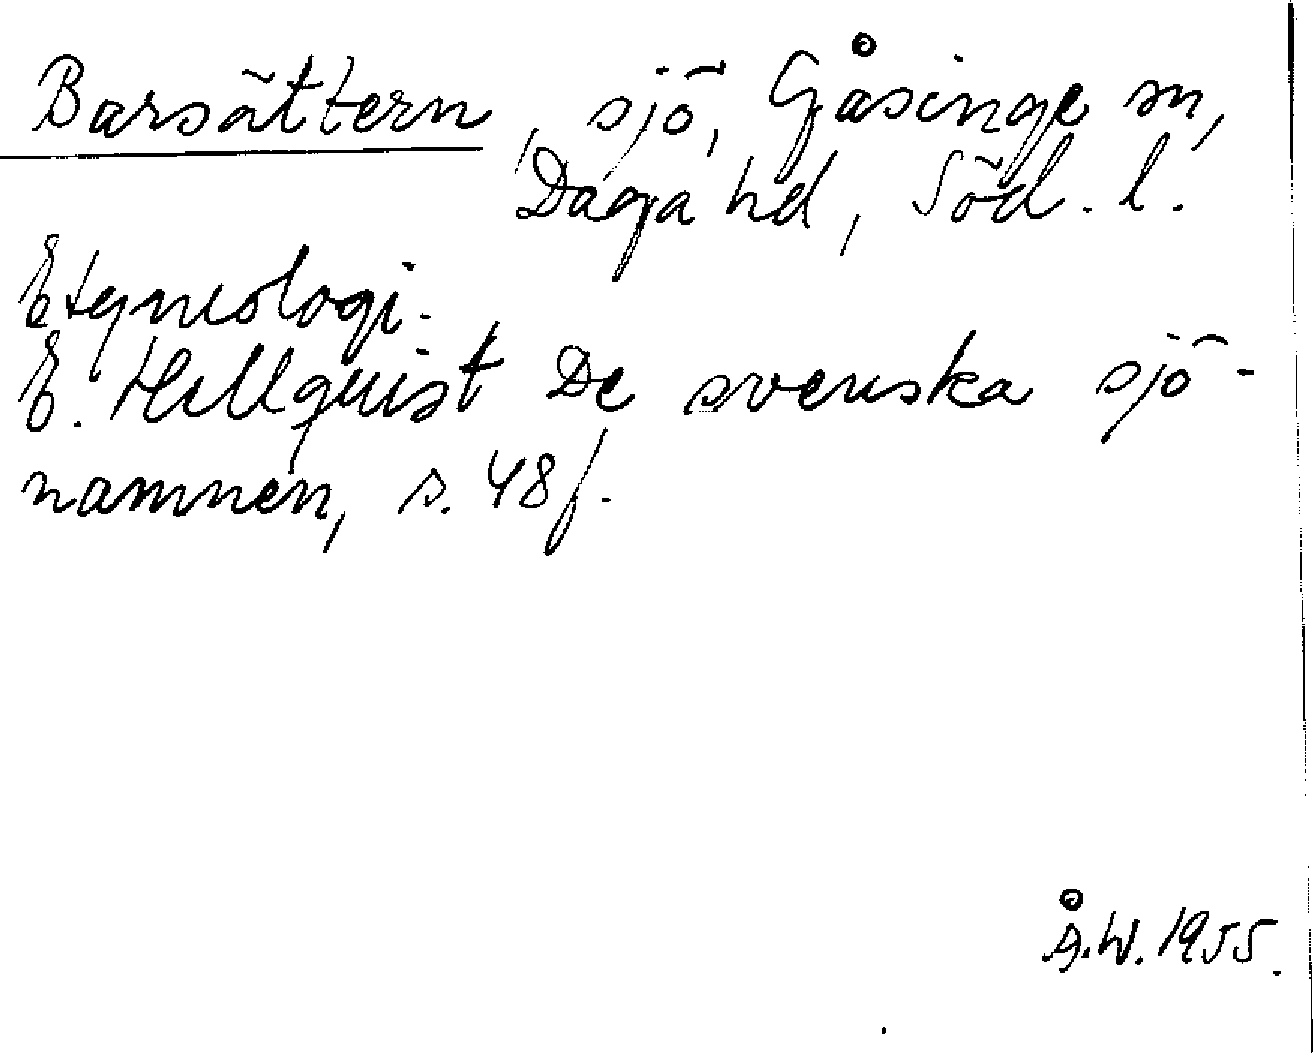 Barsättern, sjö, Gåsinge sn,
Daga hd, Söd. l.
Etymologi.
E. Hellquist De svenska sjö-
namnen, s. 48 f.
Å.W. 1955.